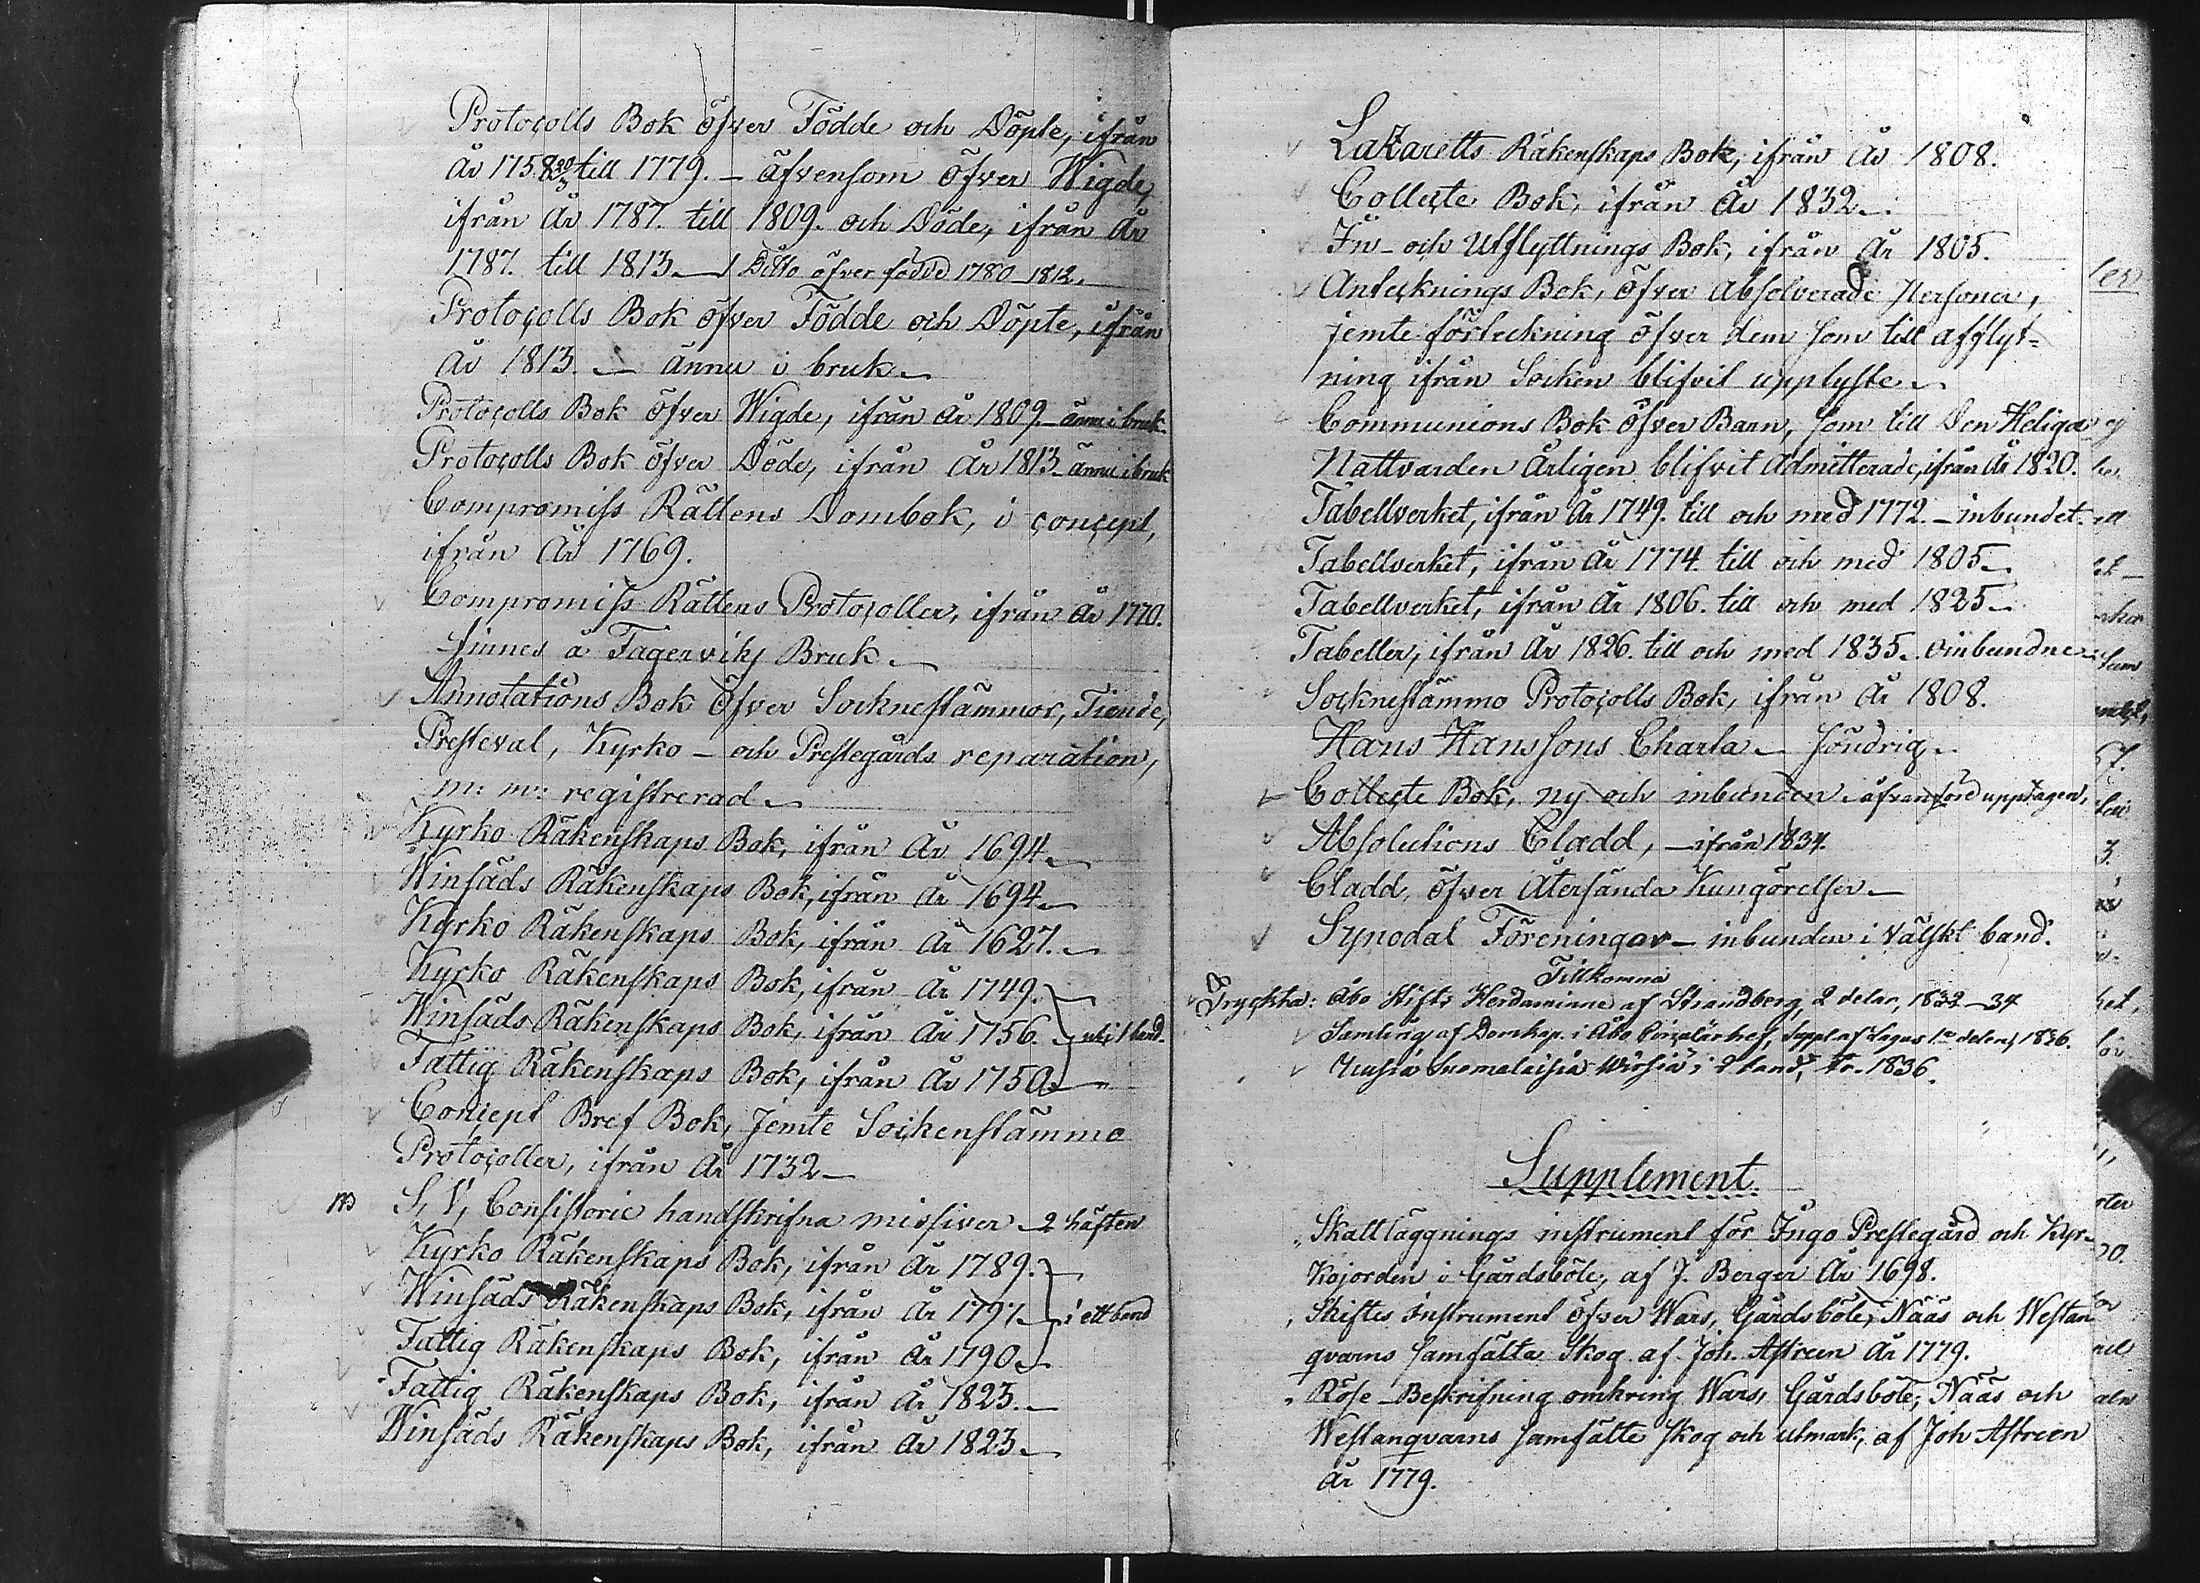 Protocolls Bok öfver Födde och Döpte, ifrån
År 1758 30/3 till 1779. – äfvensom öfver Wigde,
ifrån År 1787. till 1809. och Döde, ifrån År
1787. till 1813. – 1 Ditto öfver födde 1780–1812.
Protocolls Bok öfver Födde och Döpte, ifrån
År 1813. – ännu i bruk –
Protocolls Bok öfver Wigde, ifrån År 1809. – ännu i bruk
Protocolls Bok öfver Döde, ifrån År 1813 – ännu i bruk
Compromiss Rättens Dombok, i concept,
ifrån År 1769.
Compromiss Rättens Protocoller, ifrån År 1770.
finnes å Fagerviks Bruk –
Annotations Bok öfver Socknestämmor, Tionde,
Presteval, Kyrko – och Prestegårds reparation,
m: m: registrerad –
Kyrko Räkenskaps Bok, ifrån År 1694 –
Winsäds Räkenskaps Bok, ifrån År 1694 –
Kyrko Räkenskaps Bok, ifrån År 1627. –
Kyrko Räkenskaps Bok, ifrån År 1749. –
Winsäds Räkenskaps Bok, ifrån År 1756. – uti 1 band.
Fattig Räkenskaps Bok, ifrån År 1750 –
Concept Bref Bok, Jemte Sockenstämmo
Protocoller, ifrån År 1732 –
S. V. Consistorie handskrifna missiver – 2 häften
Kyrko Räkenskaps Bok, ifrån År 1789. –
Winsäds Räkenskaps Bok, ifrån År 1797 – i ett band
Fattig Räkenskaps Bok, ifrån År 1790 –
Fattig Räkenskaps Bok, ifrån År 1823. –
Winsäds Räkenskaps Bok, ifrån År 1823 –
Lazaretts Räkenskaps Bok, ifrån År 1808.
Collecte Bok, ifrån År 1832 –
In – och Utflyttnings Bok, ifrån År 1805.
Antecknings Bok, öfver Absolverade Personer,
jemte förteckning öfver dem som till afflyt=
ning ifrån Socken blifvit upplyste –
Communions Bok öfver Barn, som till Den Heliga
Nattvarden Årligen blifvit Admitterade, ifrån År 1820.
Tabellverket, ifrån År 1749. till och med 1772. – inbundet.
Tabellverket, ifrån År 1774. till och med 1805 –
Tabellverket, ifrån År 1806. till och med 1825 –
Tabeller, ifrån År 1826. till och med 1835. oinbundne –
Socknestämmo Protocolls Bok, ifrån År 1808.
Hans Hanssons Charta – söndrig –
Collecte Bok, ny och inbunden – äfvanföre upptagen,
Absolutions Cladd, – ifrån 1834.
Cladd, öfver Återsända Kungörelser –
Synodal Föreningar – inbunden i Välskt band.
Tillkomna
Tryckta: Åbo Stifts Herdaminne af Strandberg, 2 delar, 1832–34
Samling af Domkap. i Åbo Circulärbref, Suppl af Lagus 1a delen, 1836.
Uusia Suomalaisia Wirsiä i 2 band, Tr. 1836.
Supplement
Skattläggnings instrument för Ingo Prestegård och Kyr-
kojorden i Gårdsböle, af J. Berger År 1698.
Skiftes Instrument öfver Wars, Gårdsböle, Nääs och Westan-
qvarns samfälta Skog af Joh. Astreen År 1779.
Röse – Beskrifning omkring Wars, Gårdsböle, Nääs och
Westanqvarns samfälte skog och utmark, af Joh Astreen
År 1779.